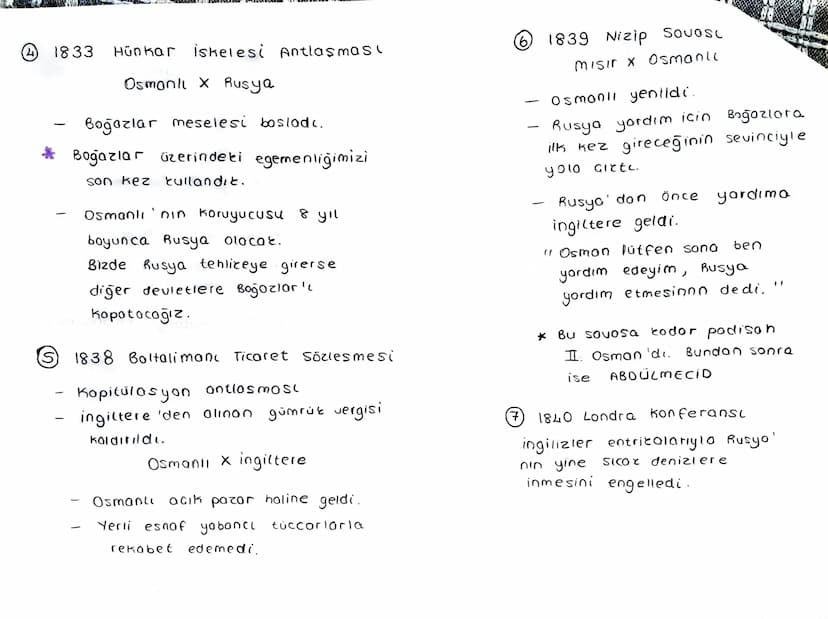 ④ 1833 Hünkar İskelesi Antlaşması
Osmanlı X Rusya
– Boğazlar meselesi başladı.
* Boğazlar üzerindeki egemenliğimizi
son kez kullandık.
– Osmanlı'nın koruyucusu 8 yıl
boyunca Rusya olacak.
Bizde Rusya tehlikeye girerse
diğer devletlere Boğazlar'ı
kapatacağız.
⑤ 1838 Baltalimanı Ticaret Sözleşmesi
– Kapitülasyon antlaşması
– İngiltere'den alınan gümrük vergisi
kaldırıldı.
Osmanlı X İngiltere
– Osmanlı açık pazar haline geldi.
– Yerli esnaf yabancı tüccarlarla
rekabet edemedi.
⑥ 1839 Nizip Savaşı
Mısır x Osmanlı
– Osmanlı yenildi.
– Rusya yardım için Boğazlara
ilk kez gireceğinin sevinciyle
yola çıktı.
– Rusya'dan önce yardıma
İngiltere geldi.
" Osman lütfen sana ben
yardım edeyim, Rusya
yardım etmesinnn dedi. "
* Bu savaşa kadar padişah
II. Osman'dı. Bundan sonra
ise ABDÜLMECİD
⑦ 1840 Londra Konferansı
İngilizler entrikalarıyla Rusya'
nın yine sıcak denizlere
inmesini engelledi.